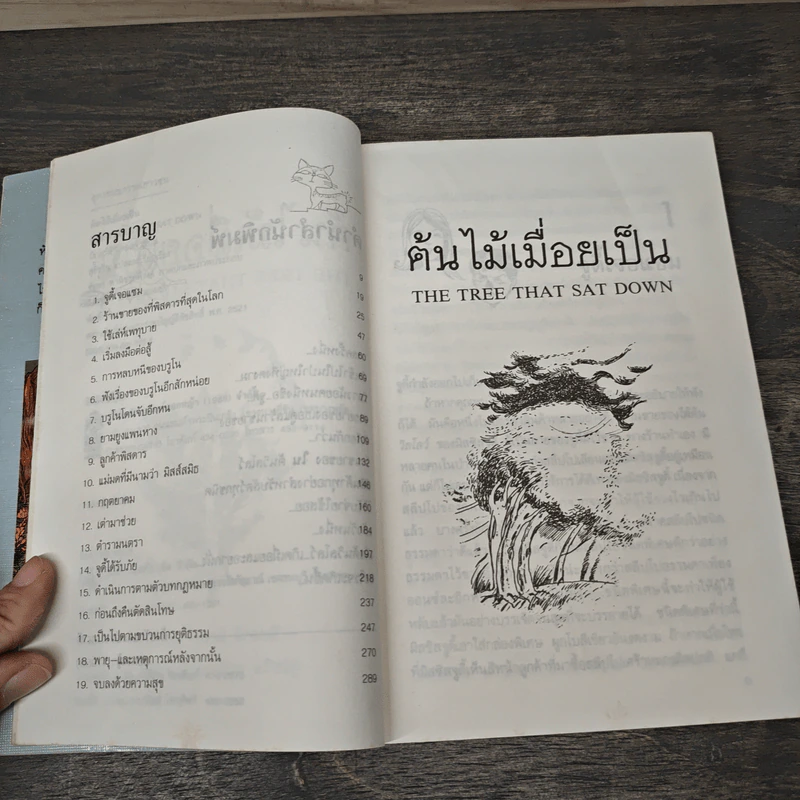 สารบาญ
1. จูดี้เจอแซม 9
2. ร้านขายของที่พิสดารที่สุดในโลก 19
3. ใช้เล่ห์เพทุบาย 25
4. เริ่มลงมือต่อสู้ 47
5. การหลบหนีของบรูโน 60
6. ฟังเรื่องของบรูโนอีกสักหน่อย 69
7. บรูโนโดนจับอีกหน 77
8. ยามยูงแพนหาง 89
9. ลูกค้าพิสดาร 109
10. แม่มดที่มีนามว่า มิสส์สมิธ 132
11. กฤตยาคม 146
12. เต่ามาช่วย 160
13. ตำรามนตรา 184
14. จูดี้ได้รับภัย 197
15. ดำเนินการตามตัวบทกฎหมาย 218
16. ก่อนถึงคืนตัดสินโทษ 237
17. เป็นไปตามขบวนการยุติธรรม 247
18. พายุ–และเหตุการณ์หลังจากนั้น 270
19. จบลงด้วยความสุข 289
ต้นไม้เมื่อยเป็น
THE TREE THAT SAT DOWN